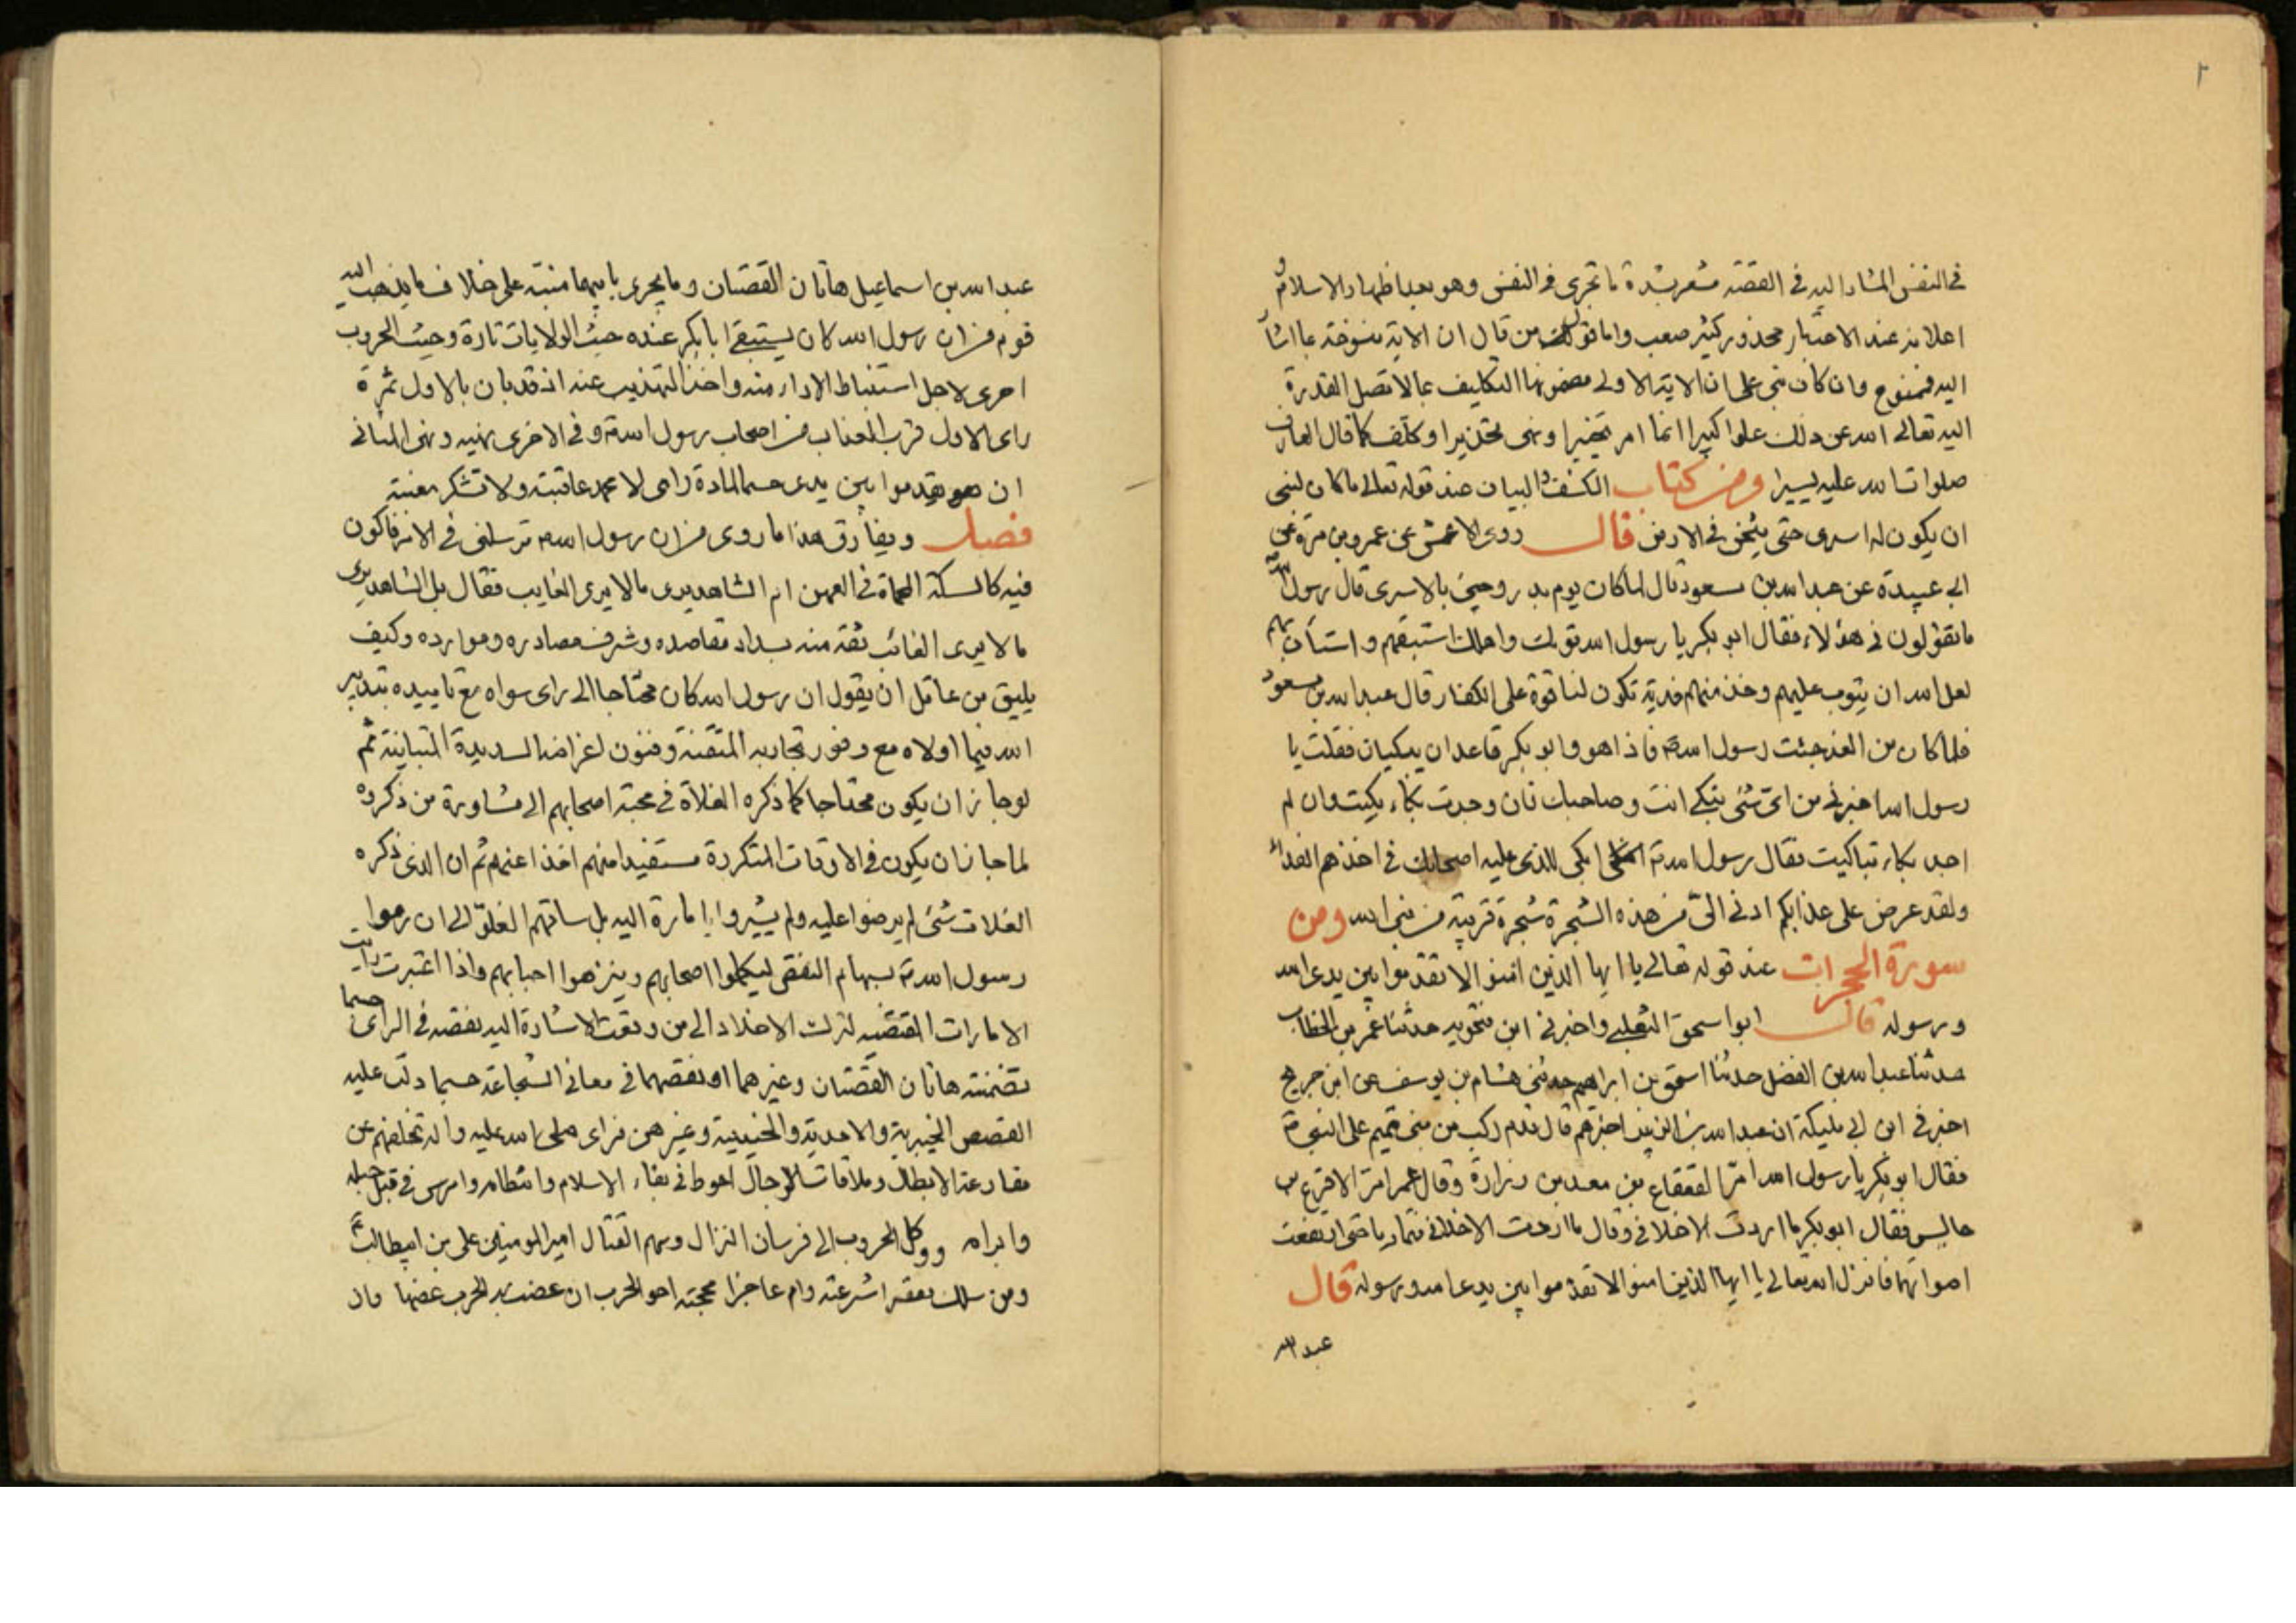 ٢
في النفس المشار اليه في القصة مشعر بشدة ما تجرى في النفس وهو بعد اظهار الاسلام و
اعلانه عند الاعتبار محذور كثير صعب واما قول من قال ان الاية منسوخة بما اشار
اليه فممنوع وان كان بنى على ان الاية الاولى مضمونها التكليف بما لا تصل القدرة
اليه تعالى الله عن ذلك علوا كبيرا انما امر تخييرا ونهى تحذيرا وكلف كما قال العارف
صلوات الله عليه يسيرا ومن كتاب الكشف و البيان عند قوله تعالى ما كان لنبى
ان يكون له اسرى حتى يثخن في الارض قال روى الاعمش عن عمرو بن مرة عن
ابي عبيدة عن عبد الله بن مسعود قال لما كان يوم بدر وجئ بالاسرى قال رسول الله
ما تقولون في هؤلاء فقال ابو بكر يا رسول الله قومك واهلك استبقهم واستأن بهم
لعل الله ان يتوب عليهم وخذ منهم فدية تكون لنا قوة على الكفار قال عبد الله بن مسعود
فلما كان من الغد جئت رسول الله فاذا هو وابو بكر قاعدان يبكيان فقلت يا
رسول الله اخبرني من اى شئ تبكي انت وصاحبك فان وجدت بكاء بكيت وان لم
اجد بكاء تباكيت فقال رسول الله ابكى للذى عليه اصحابك في اخذهم الفداء
ولقد عرض على عذابكم ادنى الىّ من هذه الشجرة شجرة قريبة من نبى الله ومن
سورة الحجرات عند قوله تعالى يا ايها الذين امنوا لا تقدموا بين يدى الله
ورسوله قال ابو اسحق الثعلبي واخبرني ابن فنجويه حدثنا عمر بن الخطاب
حدثنا عبد الله بن الفضل حدثنا اسحق بن ابراهيم حدثني هشام بن يوسف عن ابن جريج
اخبرني ابن ابي مليكة ان عبد الله بن الزبير اخبرهم قال قدم ركب من بنى تميم على النبي
فقال ابو بكر يا رسول الله امّر القعقاع بن معبد بن زرارة وقال عمر امّر الاقرع بن
حابس فقال ابو بكر ما اردت الا خلافي وقال ما اردت الا خلافك فتماريا حتى ارتفعت
اصواتهما فانزل الله تعالى يا ايها الذين امنوا لا تقدموا بين يدى الله ورسوله قال
عبد الله
عبد الله بن اسماعيل هاتان القصتان وما يجرى بابهما منبه على خلاف ما يذهب اليه
قوم من ان رسول الله كان يستبقى ابا بكر عنده حيث الولايات تارة وحيث الحروب
اخرى لاجل استنباط الاراء منه واخذ التهذيب عنه اذ قد بان بالاول ثمرة
راى الاول قرب العذاب من اصحاب رسول الله وفي الاخرى نهيه ونهى الثاني
ان يقدموا بين يدى حسما لمادة راى لا يحمد عاقبته ولا تشكر مغبته
فصل ويفارق هذا ما روى من ان رسول الله ترسلني في الامر فاكون
فيه كالسكة المحماة في العهن ام الشاهد يرى ما لا يرى الغايب فقال بل الشاهد يرى
ما لا يرى الغائب ثقة منه بسداد مقاصده وشرف مصادره وموارده وكيف
يليق من عاقل ان يقول ان رسول الله كان محتاجا الى راى سواه مع تاييده بتدبير
الله فيما اولاه مع وفور تجاربه المتقنة وفنون اغراضه السديدة المتباينة ثم
لو جاز ان يكون محتاجا كما ذكره الغلاة في محبة اصحابهم الى مشاورة من ذكروه
لما جاز ان يكون في الاوقات المتكررة مستفيدا منهم اخذا عنهم ثم ان الذى ذكره
الغلات شئ لم يرضوا عليه ولم يشيروا بامارة اليه بل ساقهم الغلو الى ان رموا
رسول الله بسهام النقص ليكملوا اصحابهم وينزهوا احبابهم واذا اعتبرت
الامارات القصصية لترك الاخلاد الى من وقعت الاشارة اليه بنقصه في الراى حسبما
تضمنته هاتان القصتان وغيرهما او نقصهما في معاني الشجاعة حسبما دلت عليه
القصص الخيبرية والاحدية والحنينية وغيرهن فراى صلى الله عليه واله تخلفهم عن
مقارعة الابطال وملاقات الرجال احوط في بقاء الاسلام وانتظامه
وابرامه ووكل الحروب الى فرسان النزال وبهم القتال امير المومنين على بن ابيطالب
ومن سلك شرعته وام عاجزا محجته اخو الحرب ان عضت به الحرب عضها وان